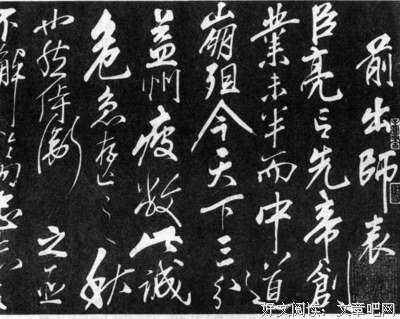 前出師表
臣亮言先帝創
業未半而中道
崩殂今天下三分
益州疲敝此誠
危急存亡之秋
也然侍衛之臣
不解於内忠
好文阅读：文章吧网